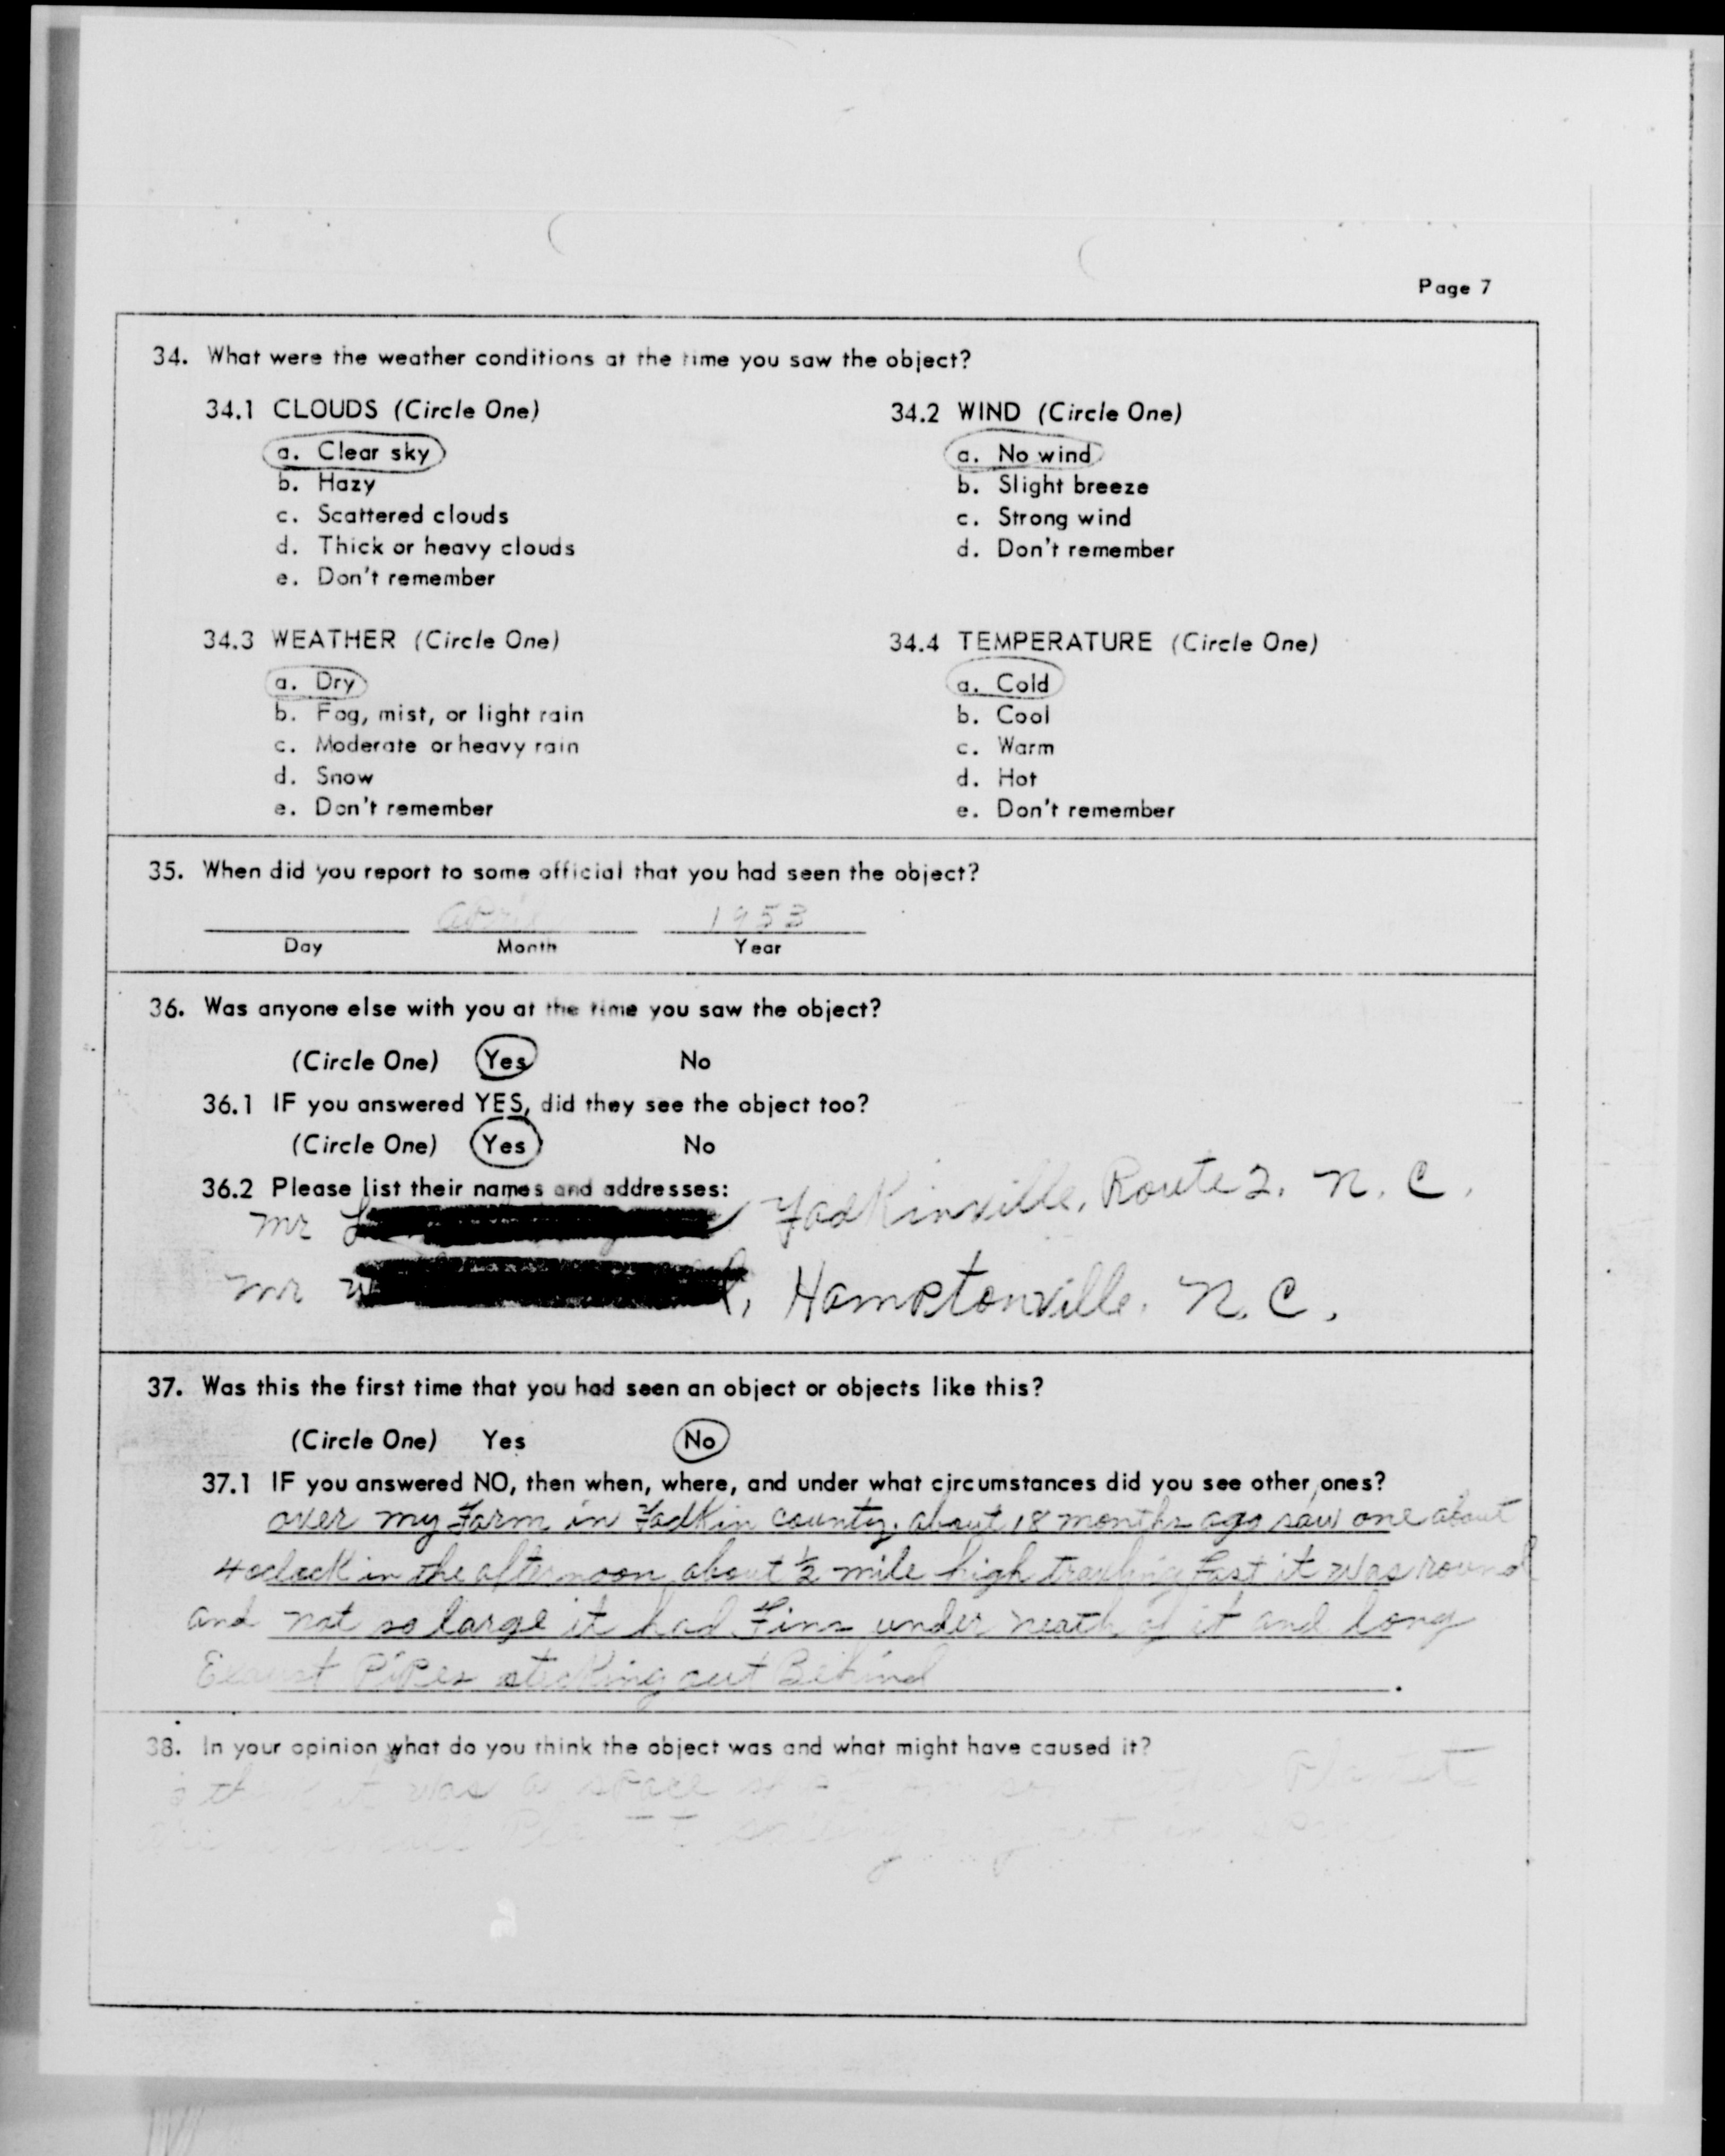 Page 7
34. What were the weather conditions at the time you saw the object?
34.1 CLOUDS (Circle One)
a. Clear sky
b. Hazy
c. Scattered clouds
d. Thick or heavy clouds
e. Don't remember
34.2 WIND (Circle One)
a. No wind
b. Slight breeze
c. Strong wind
d. Don't remember
34.3 WEATHER (Circle One)
a. Dry
b. Fog, mist, or light rain
c. Moderate or heavy rain
d. Snow
e. Don't remember
34.4 TEMPERATURE (Circle One)
a. Cold
b. Cool
c. Warm
d. Hot
e. Don't remember
35. When did you report to some official that you had seen the object?
April 1953
Day Month Year
36. Was anyone else with you at the time you saw the object?
(Circle One) Yes No
36.1 IF you answered YES, did they see the object too?
(Circle One) Yes No
36.2 Please list their names and addresses:
Mr Yadkinville, Route 2. N. C.
Mr Hamptonville, N. C.
37. Was this the first time that you had seen an object or objects like this?
(Circle One) Yes No
37.1 IF you answered NO, then when, where, and under what circumstances did you see other ones?
over my Farm in Yadkin county. about 18 months ago saw one about
4 oclock in the afternoon about ½ mile high fast it was round
and not so large it had Fins under neath of it and long
Pipes sticking out Behind
38. In your opinion what do you think the object was and what might have caused it?
i think it was a space Planet